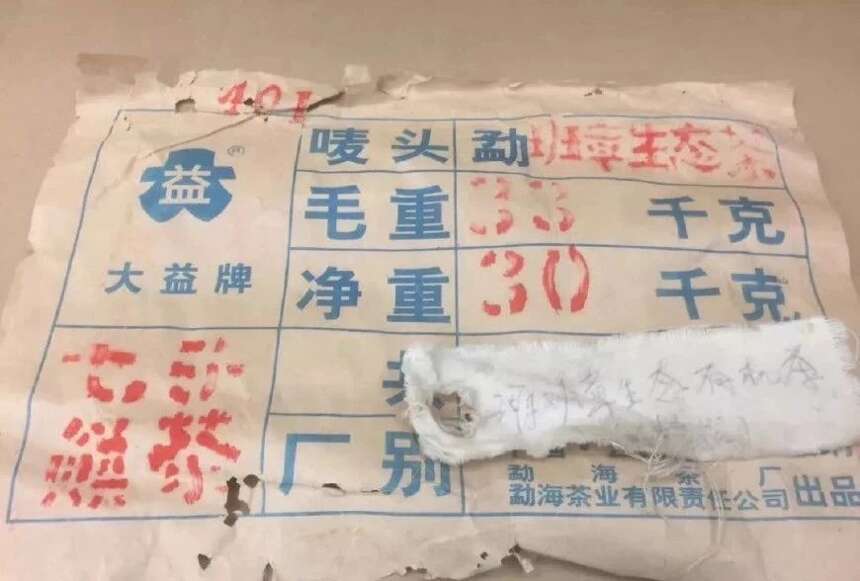 401
唛头 勐班章生态茶
益®
毛重 33 千克
大益牌
净重 30 千克
七
茶
班章生态有机
厂别
勐海茶厂
勐海茶业有限责任公司出品